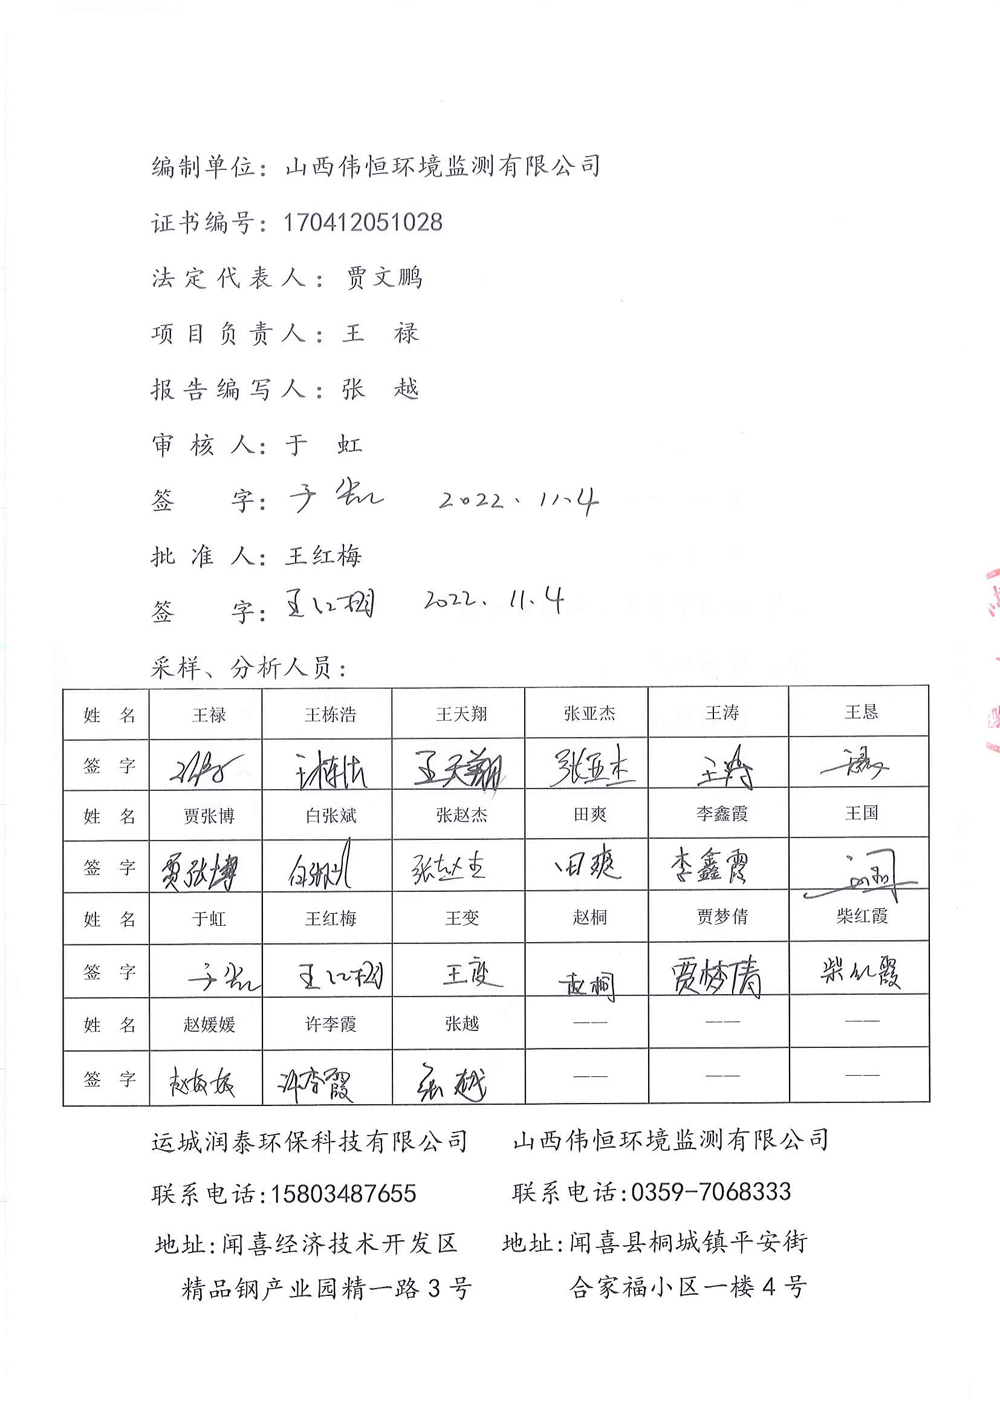 编制单位：山西伟恒环境监测有限公司
证书编号：170412051028
法定代表人：贾文鹏
项目负责人：王 禄
报告编写人：张 越
审核人：于 虹
签 字：于虹 2022.11.4
批准人：王红梅
签 字：王红梅 2022.11.4
采样、分析人员：
姓 名 王禄 王栋浩 王天翔 张亚杰 王涛 王恳
签 字 王栋浩 王天翔 张亚杰 王涛
姓 名 贾张博 白张斌 张赵杰 田爽 李鑫霞 王国
签 字 贾张博 白张斌 张赵杰 田爽 李鑫霞
姓 名 于虹 王红梅 王变 赵桐 贾梦倩 柴红霞
签 字 于虹 王红梅 王变 赵桐 贾梦倩 柴红霞
姓 名 赵媛媛 许李霞 张越 —— —— ——
签 字 赵媛媛 许李霞 张越 —— —— ——
运城润泰环保科技有限公司 山西伟恒环境监测有限公司
联系电话:15803487655 联系电话:0359-7068333
地址:闻喜经济技术开发区 地址:闻喜县桐城镇平安街
精品钢产业园精一路 3 号 合家福小区一楼 4 号